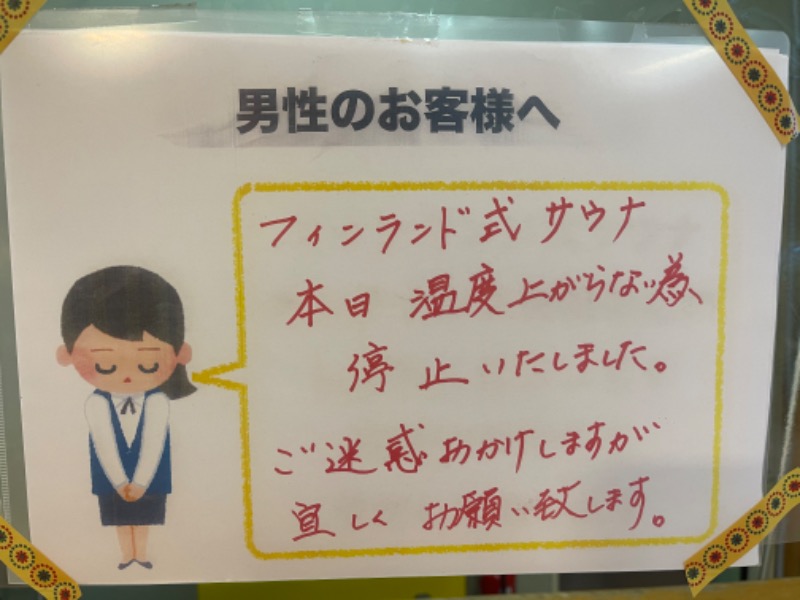 男性のお客様へ
フィンランド式 サウナ
本日 温度上がらない為、
停止いたしました。
ご迷惑おかけしますが
宜しく お願い致します。